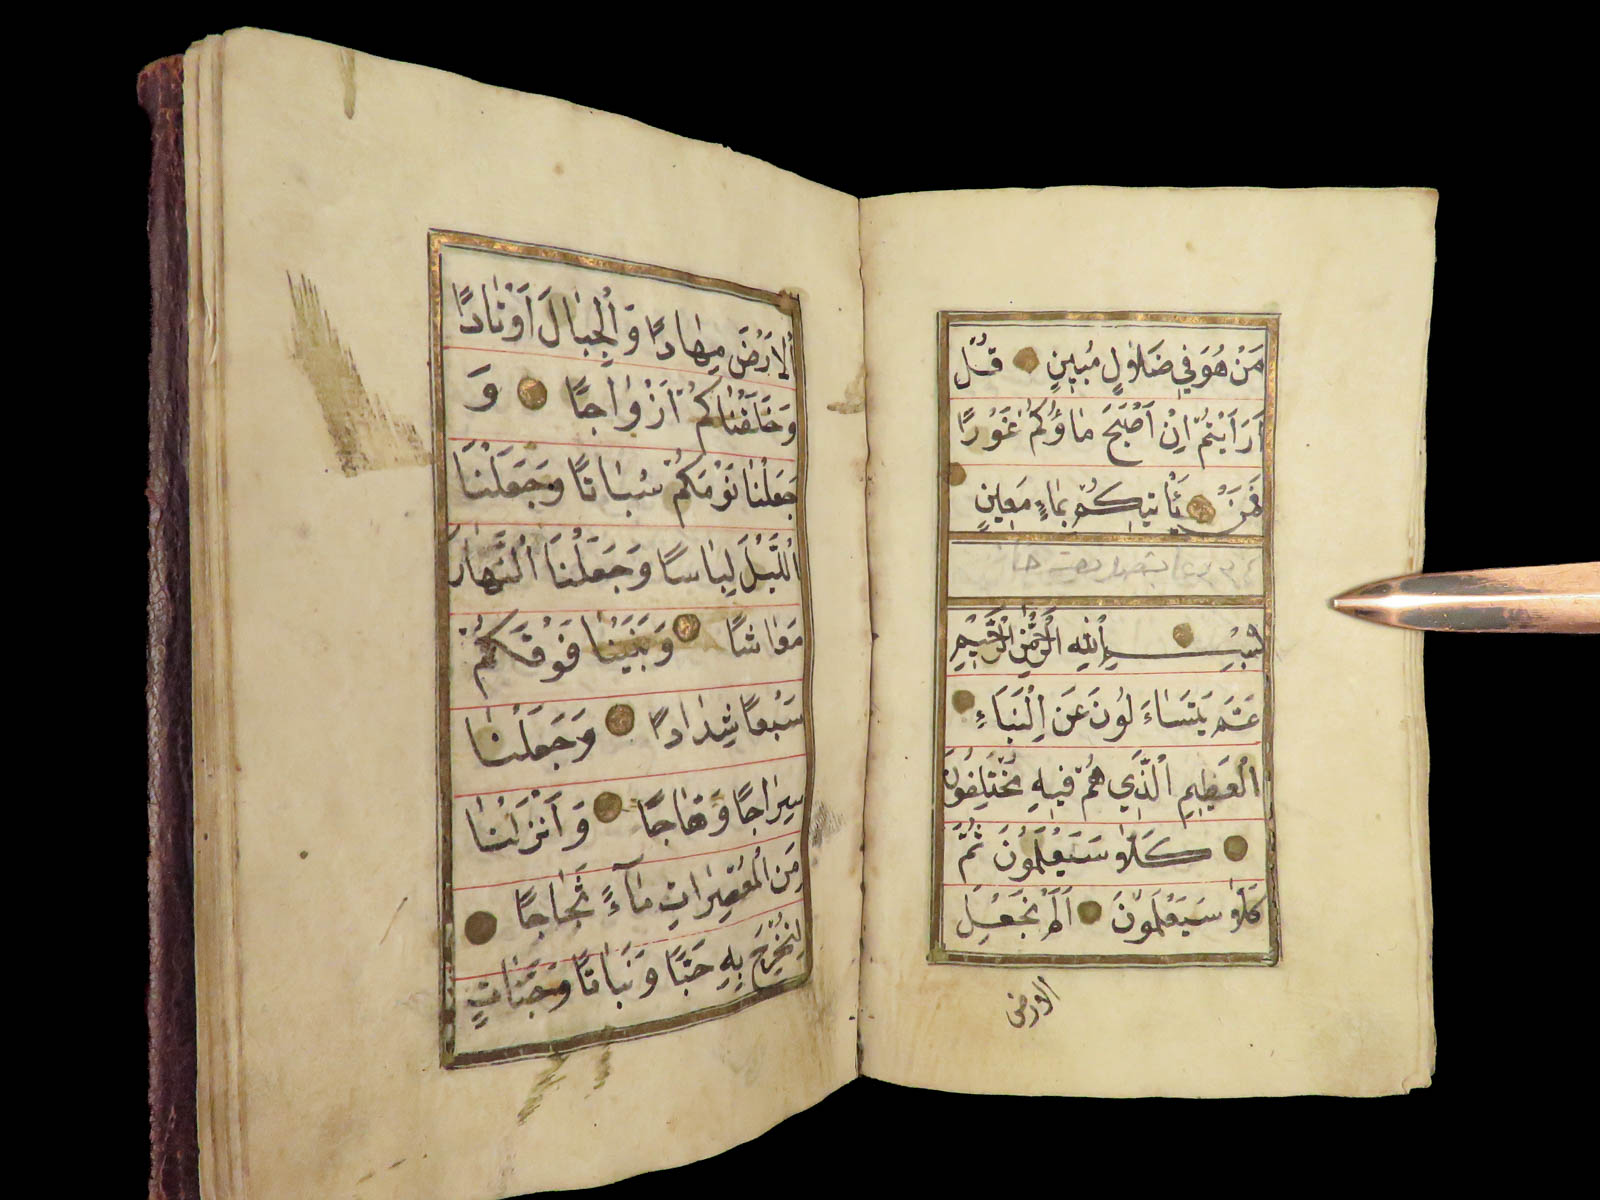 مَنْ هُوَ فِي ضَلَالٍ مُبِينٍ قُلْ
اَرَاَيْتُمْ اِنْ اَصْبَحَ مَاؤُكُمْ غَوْرًا
فَمَنْ يَأْتِيكُمْ بِمَاءٍ مَعِينٍ
بِسْمِ اللهِ الرَّحْمٰنِ الرَّحِيمِ
عَمَّ يَتَسَاءَلُونَ عَنِ النَّبَاءِ
الْعَظِيمِ الَّذِي هُمْ فِيهِ مُخْتَلِفُونَ
كَلَّا سَيَعْلَمُونَ ثُمَّ
كَلَّا سَيَعْلَمُونَ اَلَمْ نَجْعَلِ
الارض
الْاَرْضَ مِهَادًا وَالْجِبَالَ اَوْتَادًا
وَخَلَقْنَاكُمْ اَزْوَاجًا وَ
جَعَلْنَا نَوْمَكُمْ سُبَاتًا وَجَعَلْنَا
اللَّيْلَ لِبَاسًا وَجَعَلْنَا النَّهَارَ
مَعَاشًا وَبَنَيْنَا فَوْقَكُمْ
سَبْعًا شِدَادًا وَجَعَلْنَا
سِرَاجًا وَهَّاجًا وَاَنْزَلْنَا
مِنَ الْمُعْصِرَاتِ مَاءً ثَجَّاجًا
لِنُخْرِجَ بِهِ حَبًّا وَنَبَاتًا وَجَنَّاتٍ